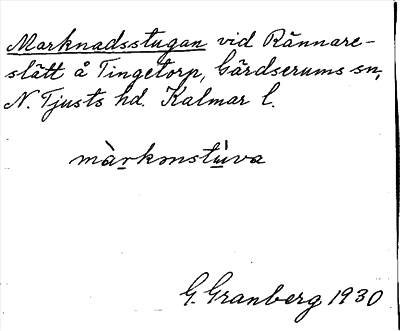 Marknadsstugan vid Rännare-
slätt å Tingetorp, Gärdserums sn,
N. Tjusts hd. Kalmar l.
màrkmstúva
G. Granberg 1930